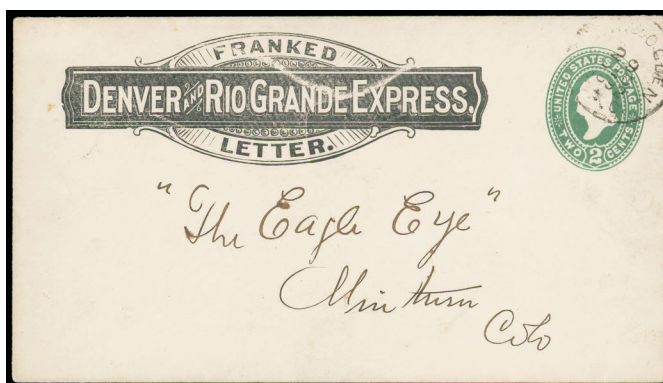 FRANKED
DENVER AND RIO GRANDE EXPRESS,
LETTER.
UNITED STATES POSTAGE
TWO 2 CENTS
"The Eagle Eye"
Minturn
Colo